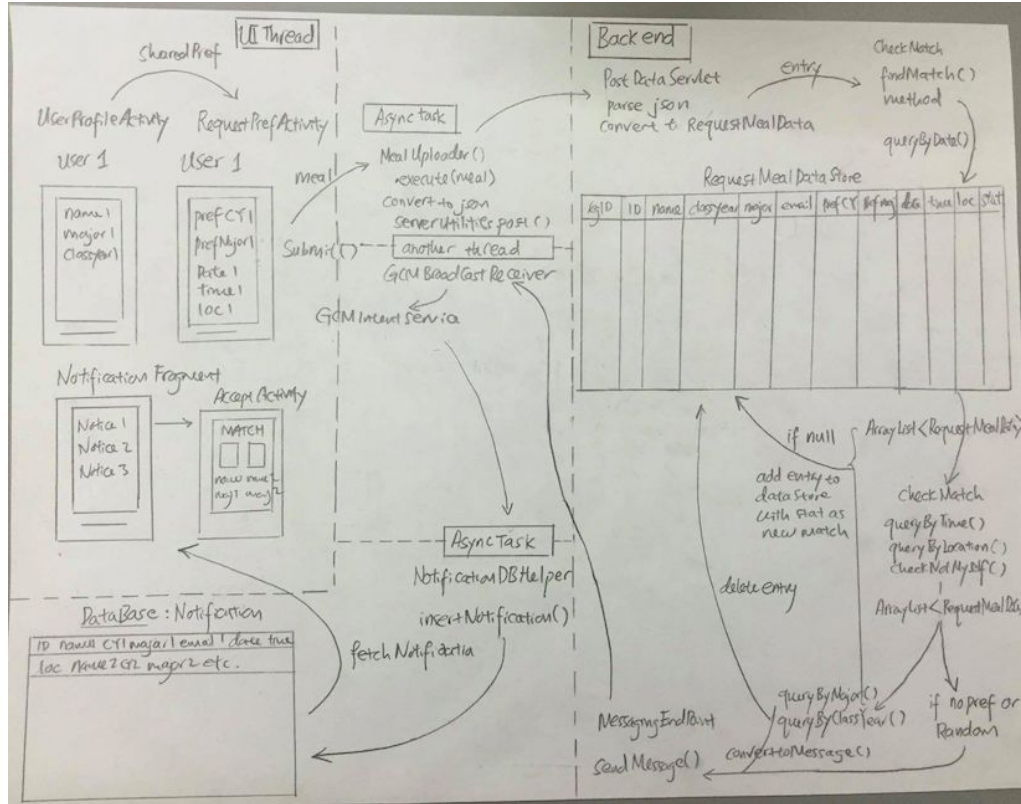 UI Thread
SharedPref
UserProfileActivity
RequestPrefActivity
User 1
User 1
name 1
major 1
Classyear1
prefCY1
prefMajor1
Date 1
time 1
loc 1
meal
Submit()
Notification Fragment
Notice 1
Notice 2
Notice 3
Accept Activity
MATCH
DataBase : Notification
ID name1 CY1 major1 email1 date time
loc name2 CY2 major2 etc.
Async task
MealUploader()
execute(meal)
convert to json
serverUtilities.post()
another thread
GCMBroadCastReceiver
GCMIntentService
AsyncTask
NotificationDBHelper
insertNotification()
fetchNotification
Backend
PostDataServlet
parse json
convert to RequestMealData
entry
CheckMatch
findMatch()
method
queryByDate()
RequestMealDataStore
ID name classyear major email prefCY date time loc stat
if null
add entry to
dataStore
with stat as
new match
ArrayList<RequestMealData>
checkMatch
queryByTime()
queryByLocation()
checkNotMyself()
ArrayList<RequestMealData>
delete entry
queryByMajor()
queryByClassYear()
if no pref or
Random
MessagingEndPoint
convertToMessage()
sendMessage()